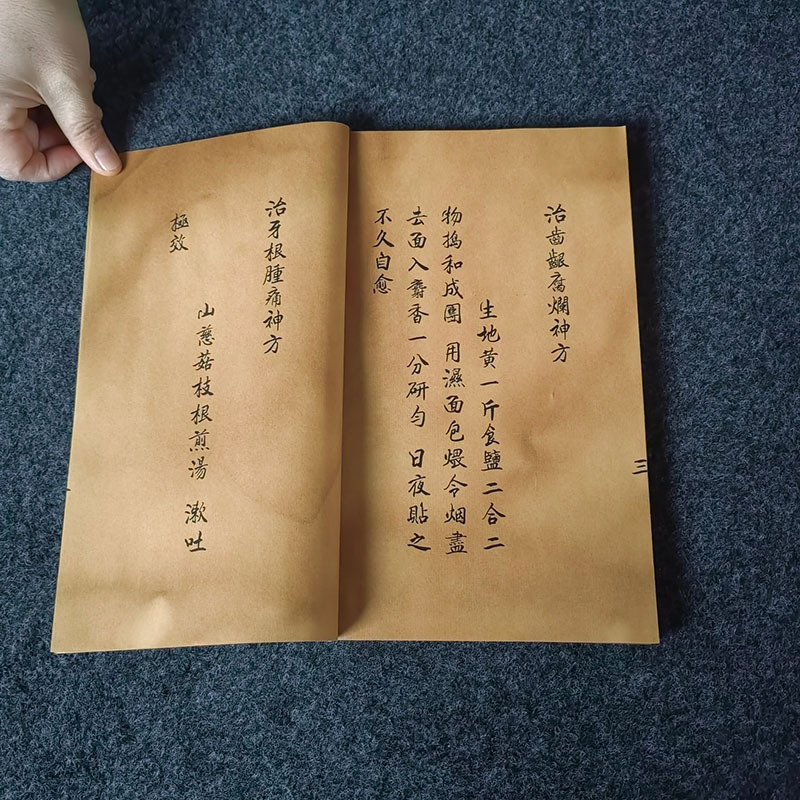 治齒齦腐爛神方
生地黄一斤食鹽二合二
物搗和成團 用濕面包煨令烟盡
去面入麝香一分研勻 日夜貼之
不久自愈
三
治牙根腫痛神方
山慈菇枝根煎湯 漱吐
極效